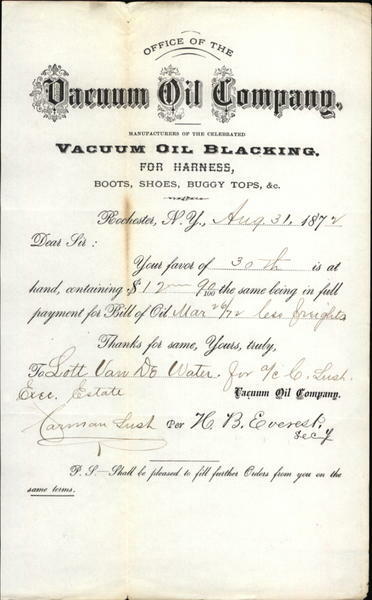 OFFICE OF THE
Vacuum Oil Company,
MANUFACTURERS OF THE CELEBRATED
VACUUM OIL BLACKING,
FOR HARNESS,
BOOTS, SHOES, BUGGY TOPS, &c.
Rochester, N.Y., Aug 31, 1872
Dear Sir:
Your favor of 30th is at
hand, containing $12 90/100 the same being in full
payment for Bill of Oil Mar 26/72 less freights
Thanks for same, Yours, truly,
To Lott Van De Water for a/c C. Lush
Exec. Estate Vacuum Oil Company.
Carman Lush Per H. B. Everest,
Secy
P. S.—Shall be pleased to fill further Orders from you on the
same terms.